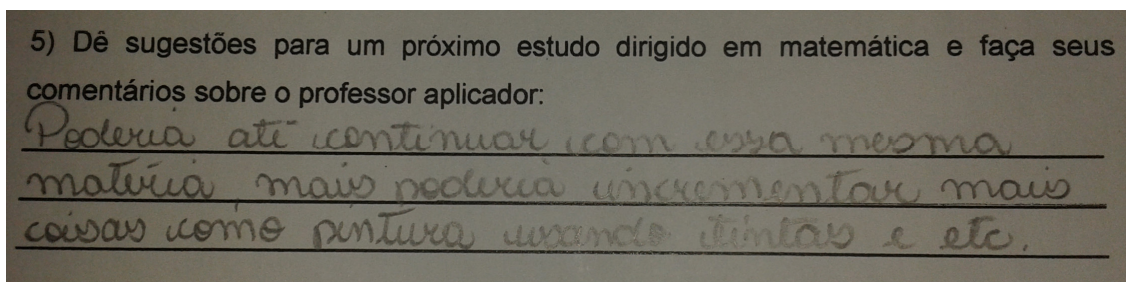 5) Dê sugestões para um próximo estudo dirigido em matemática e faça seus
comentários sobre o professor aplicador:
Poderia até continuar com essa mesma
matéria mais poderia incrementar mais
coisas como pintura usando tintas e etc.